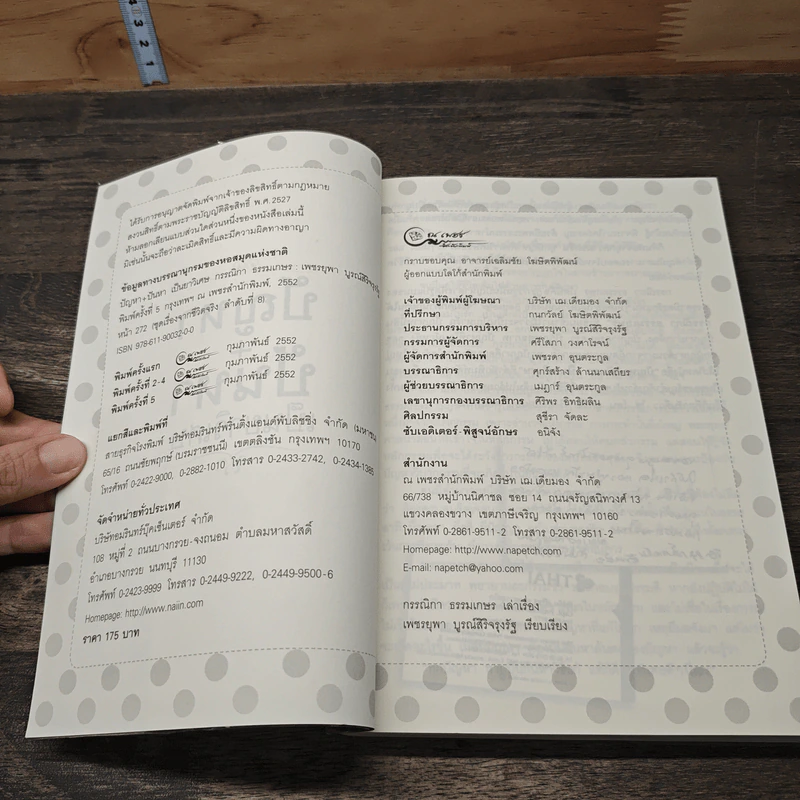 ได้รับการอนุญาตจัดพิมพ์จากเจ้าของลิขสิทธิ์ตามกฎหมาย
สงวนสิทธิ์ตามพระราชบัญญัติลิขสิทธิ์ พ.ศ.2527
ห้ามลอกเลียนแบบส่วนใดส่วนหนึ่งของหนังสือเล่มนี้
มิเช่นนั้นจะถือว่าละเมิดสิทธิ์และมีความผิดทางอาญา
ข้อมูลทางบรรณานุกรมของหอสมุดแห่งชาติ
ปัญหา+ปันหา เป็นยาวิเศษ กรรณิกา ธรรมเกษร : เพชรยุพา บูรณ์สิริจรุงรัฐ
พิมพ์ครั้งที่ 5 กรุงเทพฯ ณ เพชรสำนักพิมพ์, 2552
หน้า 272 (ชุดเรื่องจากชีวิตจริง ลำดับที่ 8)
ISBN 978-611-90032-0-0
พิมพ์ครั้งแรก ณ เพชร กุมภาพันธ์ 2552
พิมพ์ครั้งที่ 2-4 ณ เพชร กุมภาพันธ์ 2552
พิมพ์ครั้งที่ 5 ณ เพชร กุมภาพันธ์ 2552
แยกสีและพิมพ์ที่
สายธุรกิจโรงพิมพ์ บริษัทอมรินทร์พริ้นติ้งแอนด์พับลิชชิ่ง จำกัด (มหาชน)
65/16 ถนนชัยพฤกษ์ (บรมราชชนนี) เขตตลิ่งชัน กรุงเทพฯ 10170
โทรศัพท์ 0-2422-9000, 0-2882-1010 โทรสาร 0-2433-2742, 0-2434-1385
จัดจำหน่ายทั่วประเทศ
บริษัทอมรินทร์บุ๊คเซ็นเตอร์ จำกัด
108 หมู่ที่ 2 ถนนบางกรวย-จงถนอม ตำบลมหาสวัสดิ์
อำเภอบางกรวย นนทบุรี 11130
โทรศัพท์ 0-2423-9999 โทรสาร 0-2449-9222, 0-2449-9500-6
Homepage: http://www.naiin.com
ราคา 175 บาท
ณ เพชร
กราบขอบคุณ อาจารย์เฉลิมชัย โฆษิตพิพัฒน์
ผู้ออกแบบโลโก้สำนักพิมพ์
เจ้าของผู้พิมพ์ผู้โฆษณา บริษัท เฌ เดียมอง จำกัด
ที่ปรึกษา กนกวัลย์ โฆษิตพิพัฒน์
ประธานกรรมการบริหาร เพชรยุพา บูรณ์สิริจรุงรัฐ
กรรมการผู้จัดการ ศรีโสภา วงศาโรจน์
ผู้จัดการสำนักพิมพ์ เพชรดา อุนตระกูล
บรรณาธิการ ศุกร์สร้าง ล้านนาเสถียร
ผู้ช่วยบรรณาธิการ เมฎาร์ อุนตระกูล
เลขานุการกองบรรณาธิการ ศิริพร อิทธิผลิน
ศิลปกรรม สุชีรา จัดละ
ซับเอดิเตอร์-พิสูจน์อักษร อนิจัง
สำนักงาน
ณ เพชรสำนักพิมพ์ บริษัท เฌ เดียมอง จำกัด
66/738 หมู่บ้านนิศาชล ซอย 14 ถนนจรัญสนิทวงศ์ 13
แขวงคลองขวาง เขตภาษีเจริญ กรุงเทพฯ 10160
โทรศัพท์ 0-2861-9511-2 โทรสาร 0-2861-9511-2
Homepage: http://www.napetch.com
E-mail: napetch@yahoo.com
กรรณิกา ธรรมเกษร เล่าเรื่อง
เพชรยุพา บูรณ์สิริจรุงรัฐ เรียบเรียง
4
3
2
1